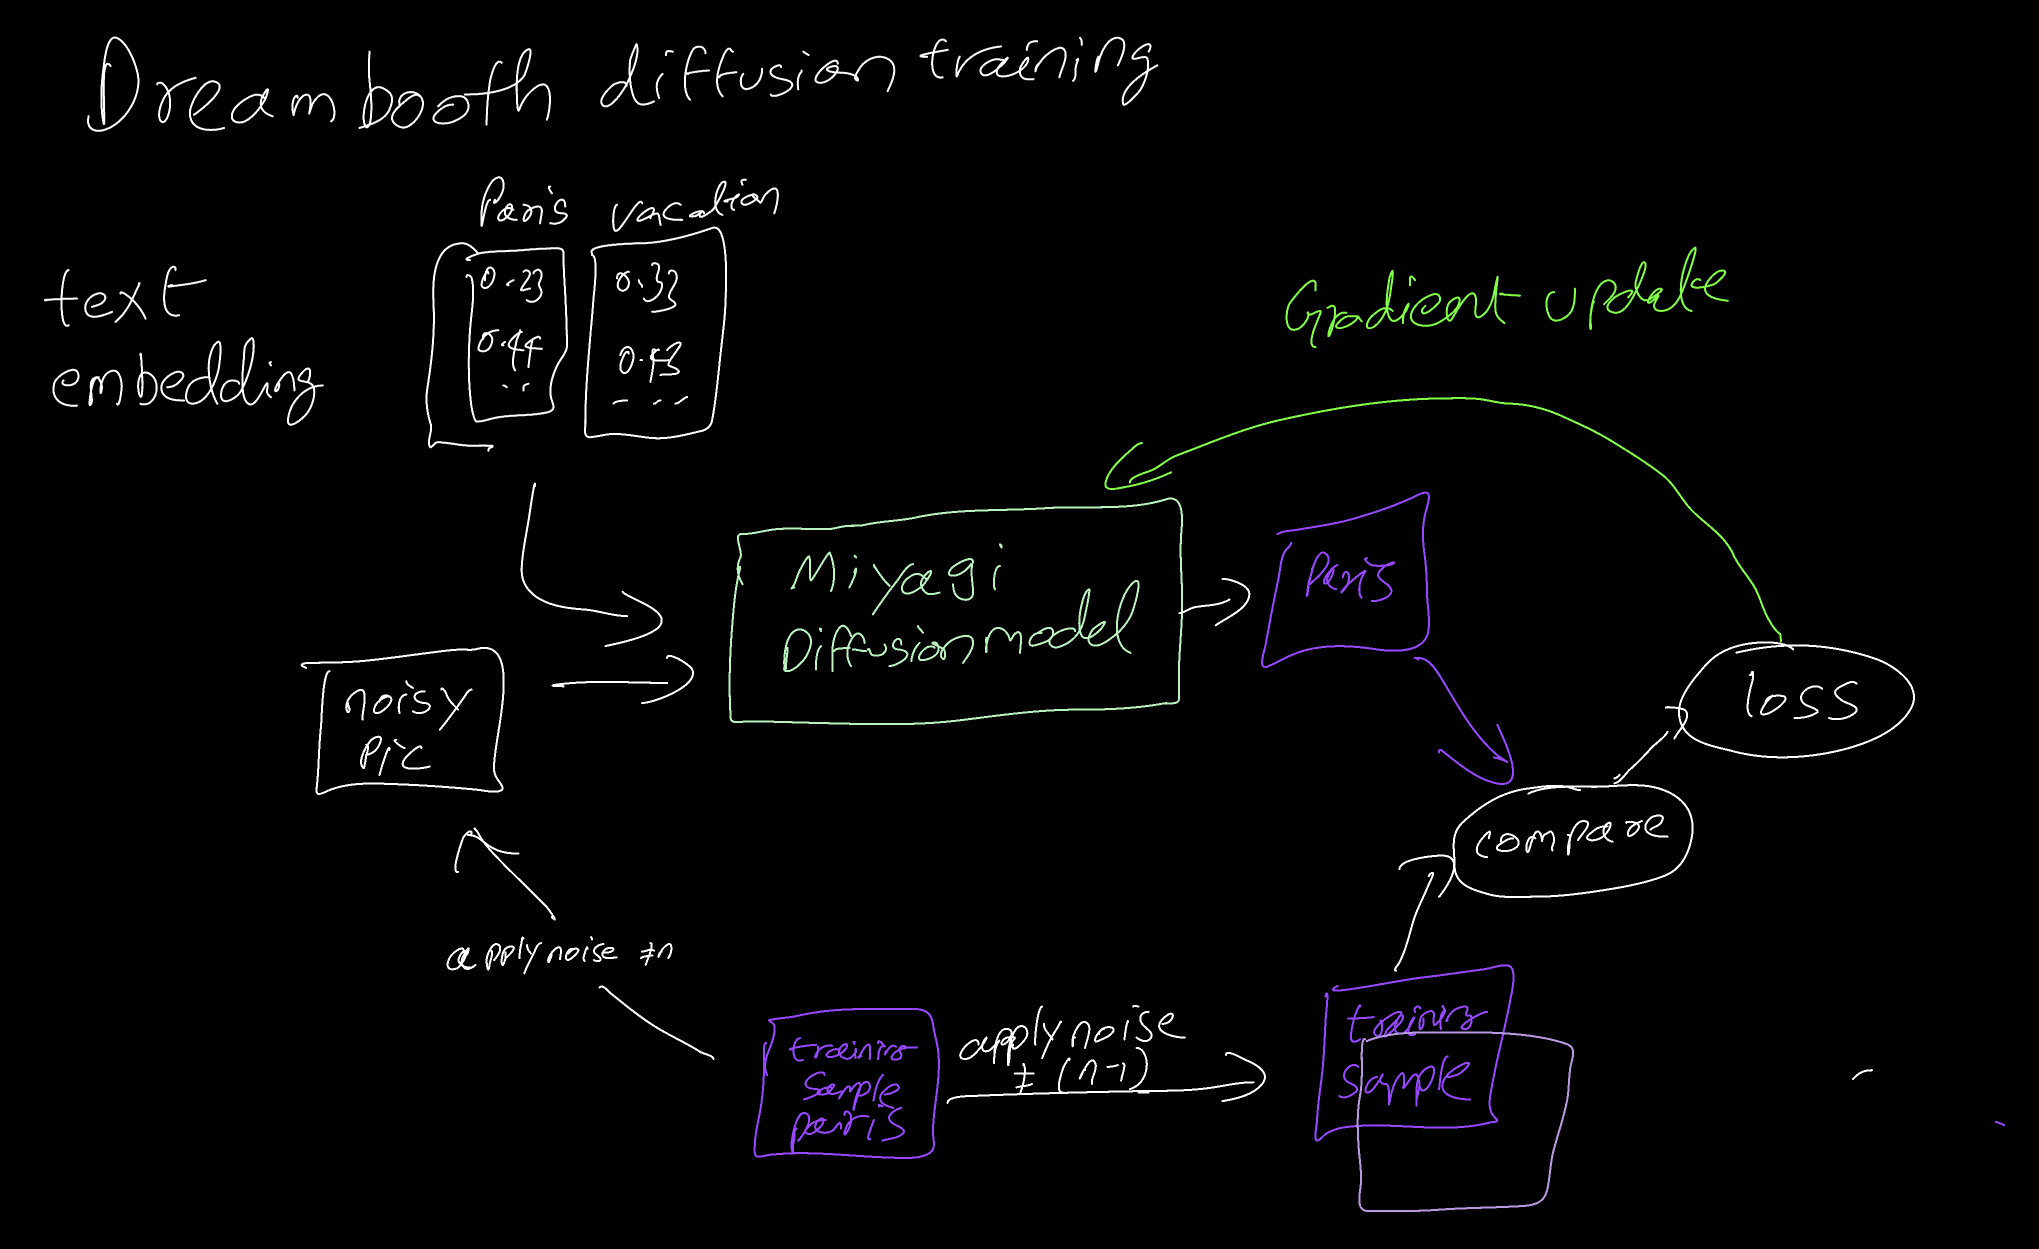 Dreambooth diffusion training
Paris vacation
text
embedding
0.23
0.44
..
0.33
0.43
- - -
Gradient update
Miyagi
Diffusion model
Paris
noisy
pic
loss
compare
apply noise ≠n
training
sample
paris
apply noise
≠ (n-1)
training
sample